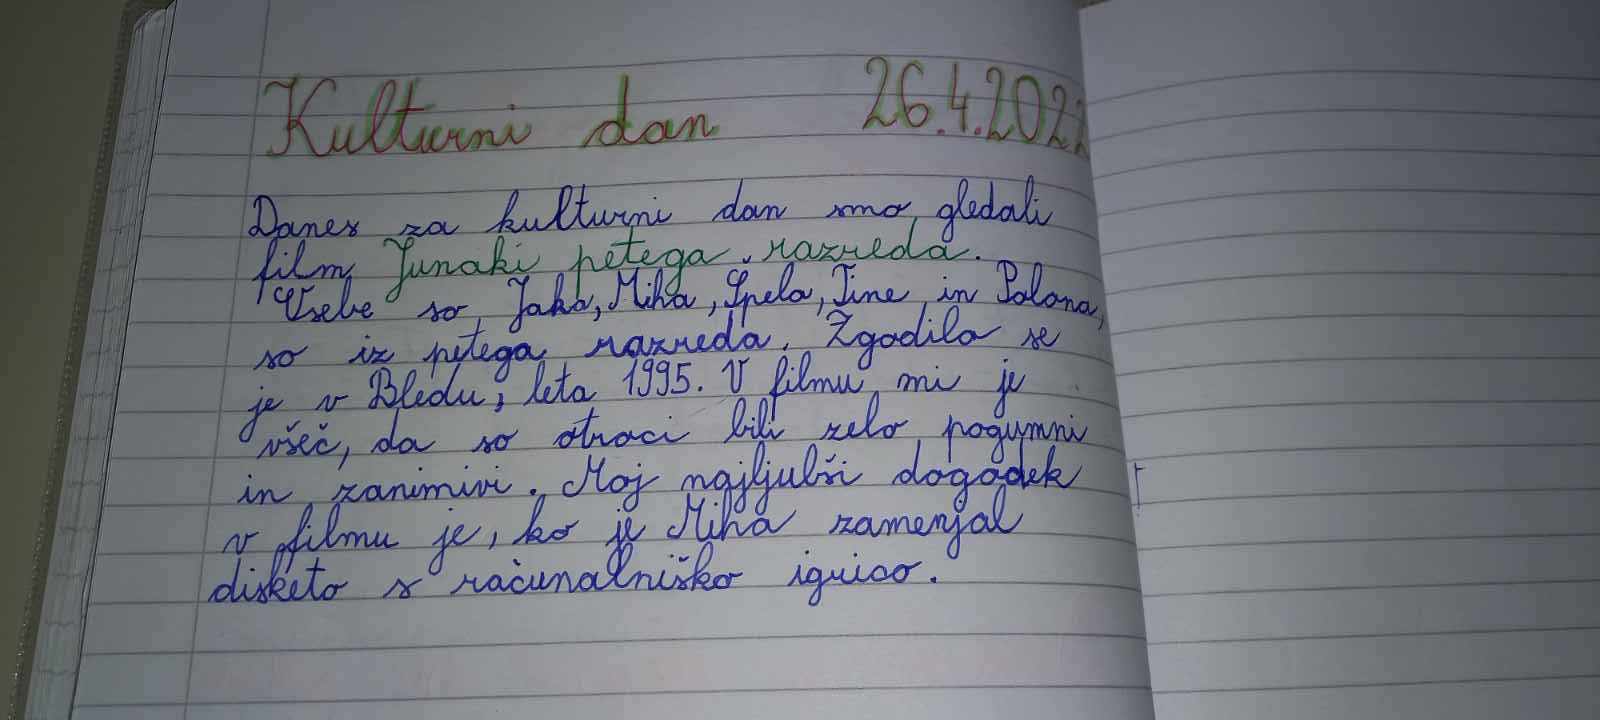 Kulturni dan 26.4.2022
Danes za kulturni dan smo gledali
film Junaki petega razreda.
Vsebe so Jaka, Miha, Špela, Tine in Polona,
so iz petega razreda. Zgodila se
je v Bledu, leta 1995. V filmu mi je
všeč, da so otroci bili zelo pogumni
in zanimivi. Moj najljubši dogodek
v filmu je, ko je Miha zamenjal
disketo s računalniško igrico.